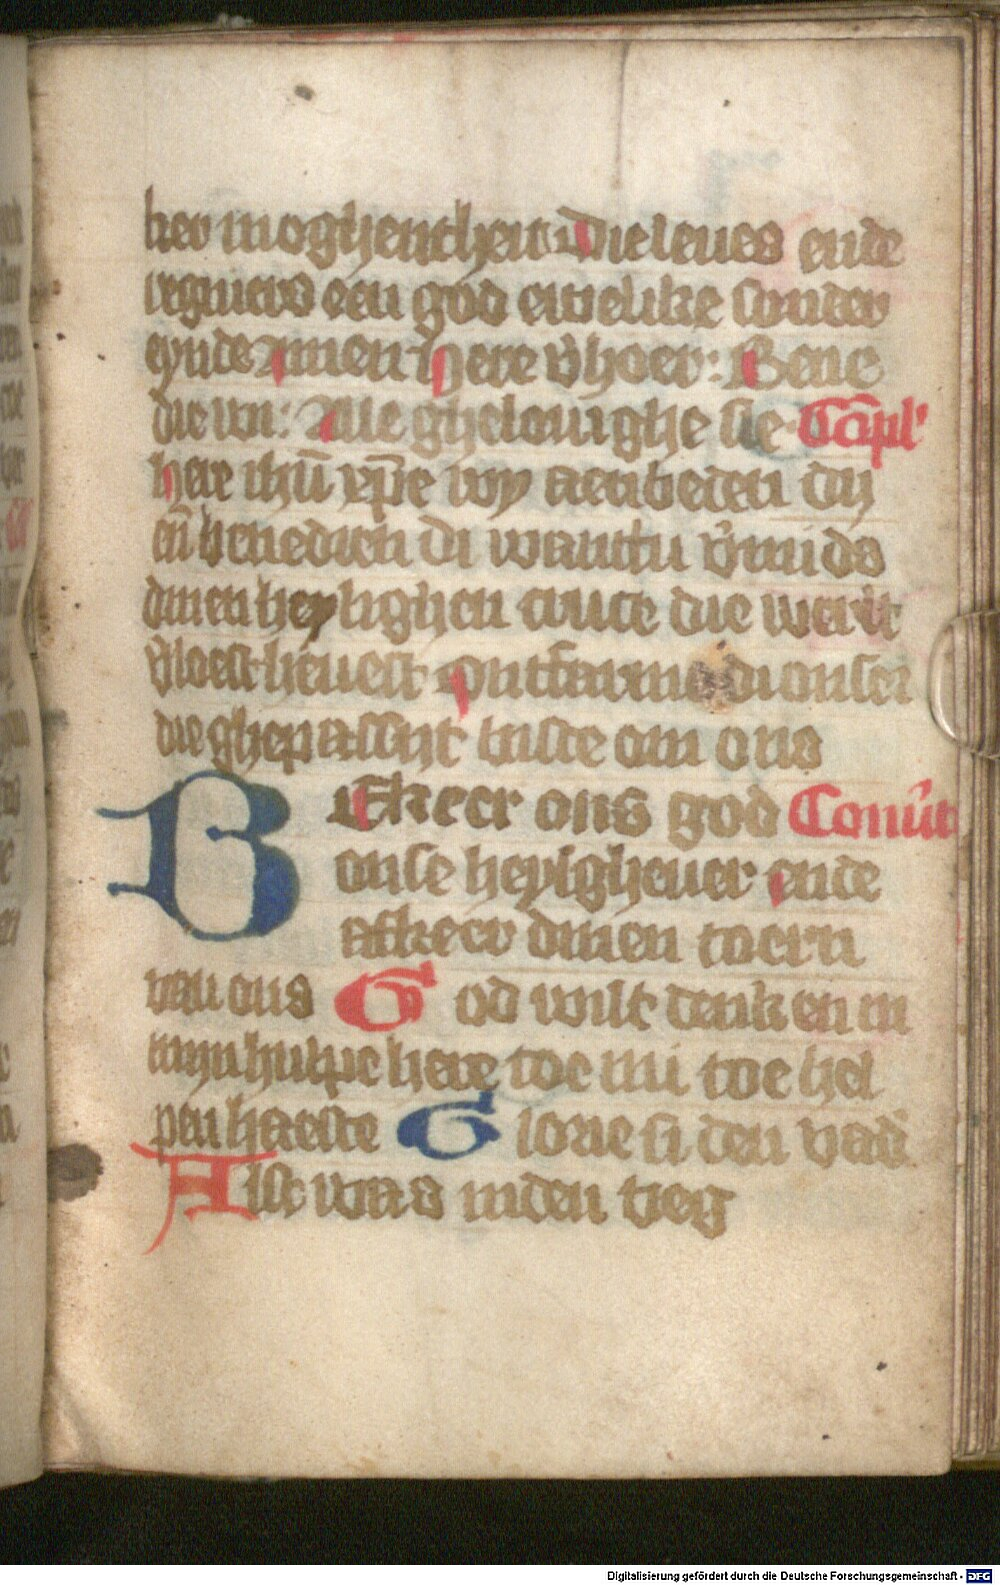 her moghentheit Die leues ende
regniers een god ewelike sonder
eynde Amen Here v̓hoer: Bene
dien wi: Alle gheloüighe sie Cōpl'
here ihū xp̄e wy aenbeden dij
eñ benedien di wantu v̓mids
dinen heylighen cruce die werlt
v̓loest heuest Ontfarme di onser
die ghepassijt biste om ons
BEkeer ons god Conūt
onse heylgheuer ende
afkeer dinen toern
van ons God wilt denken in
mijn hulpe here toe mi toe hel
pen haeste Glorie si den vad̓
Alst was inden beg
Digitalisierung gefördert durch die Deutsche Forschungsgemeinschaft - DFG